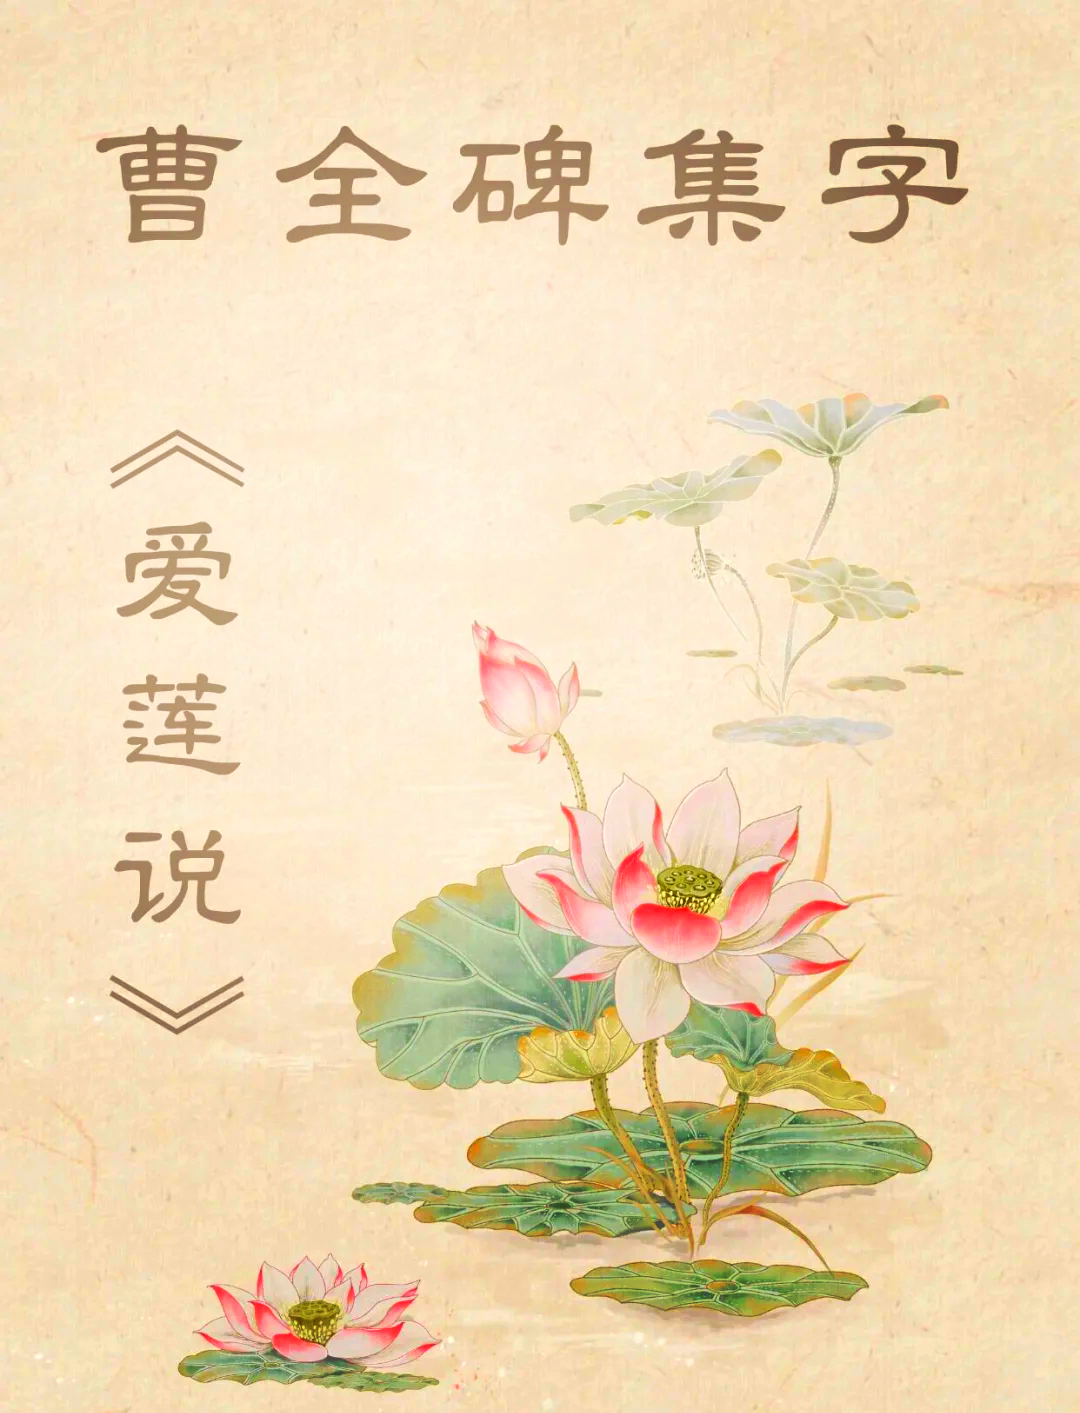 曹全碑集字
《爱莲说》